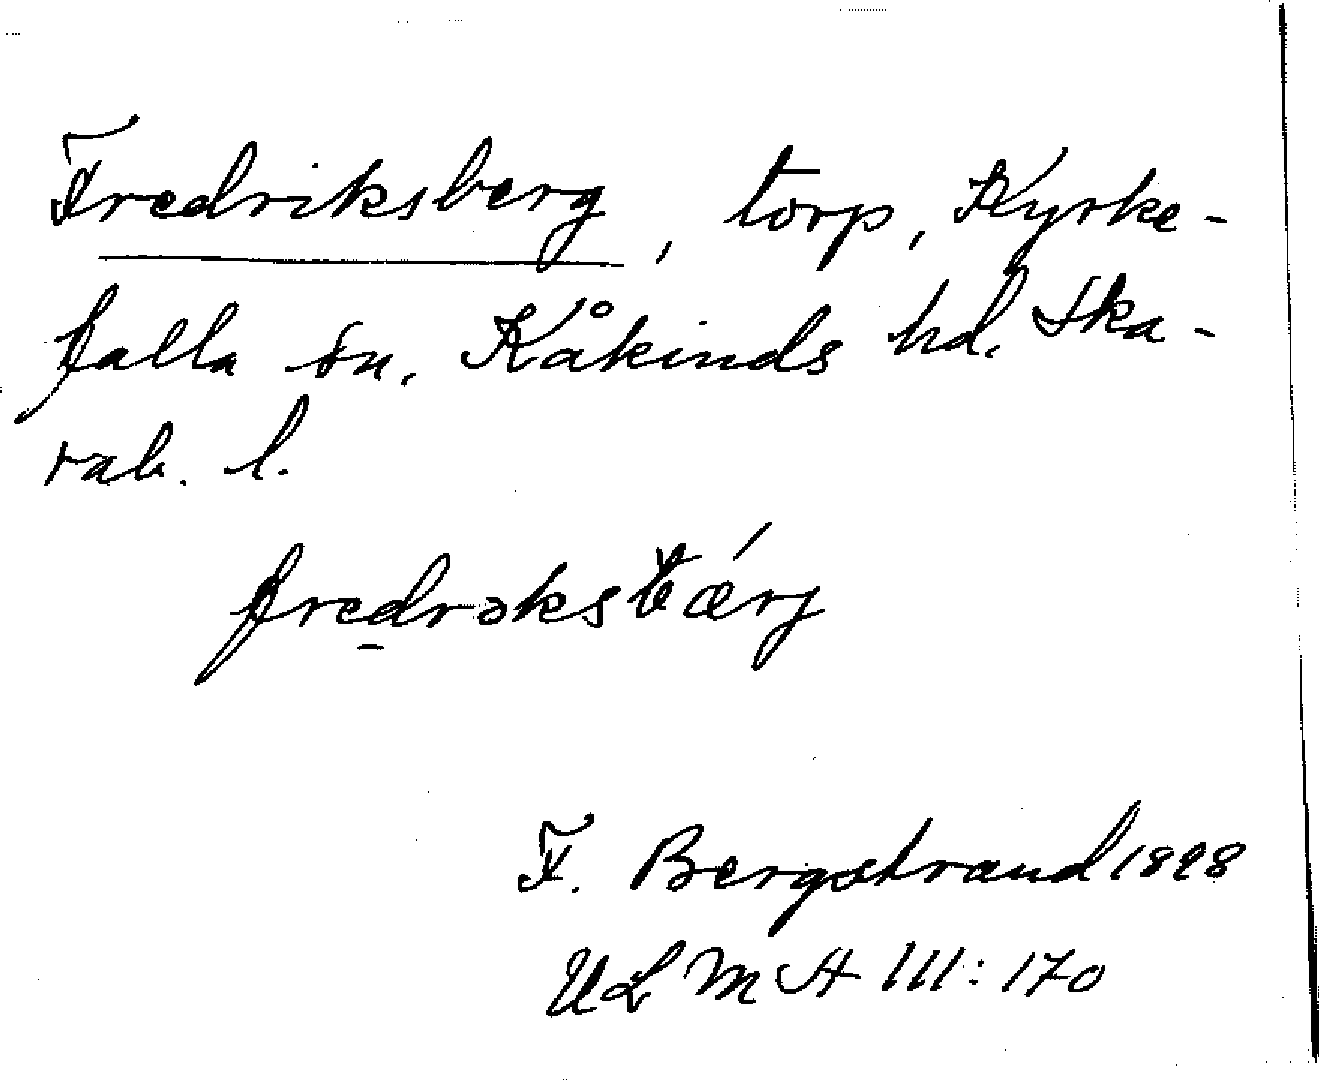 Fredriksberg, torp, Kyrke-
falla sn, Kåkinds hd. Ska-
rab. l.
fredrəksbærj
F. Bergstrand 1898
ULMA III: 170